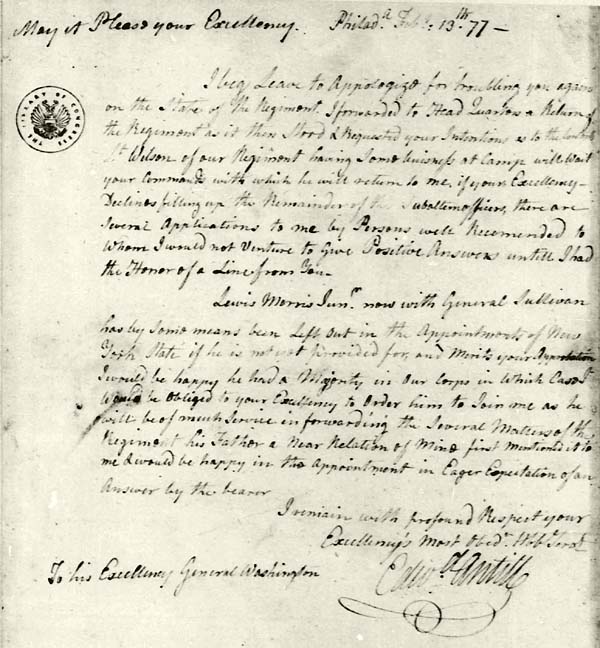 May it Please your Excellency. Philad.ª Feb.y 13th 77 —
I beg Leave to Appologize for troubling you again
on the State of the Regiment. I forwarded to Head Quarters a Return of
the Regiment as it then Stood & Requested your Intentions as to the
Lt Wilson of our Regiment having Some buisness at Camp will Wait
your Commands with which he will return to me, if your Excellency
Declines filling up the Remainder of the Subaltern officers, there are
Several Applications to me by Persons well Recomended to
Whom I would not Venture to Give Positive Answers untill I had
the Honor of a Line from You —
Lewis Morris Junr. now with General Sullivan
has by Some means been Left out in the Appointments of New
York State if he is not yet provided for, and Merits your Approbation
I would be happy he had a Majority in Our Corps in Which Case I
Would be Obliged to your Excellency to Order him to Join me as he
will be of much Service in forwarding the Several Matters of the
Regiment his Father a Near Relation of Mine first Mentioned it to
me & would be happy in the Appointment in Eager Expectation of an
Answer by the bearer
I remain with profound Respect your
Excellency's Most Obedt. Hble Servt.
Edwd. Antill
To his Excellency General Washington
THE LIBRARY OF CONGRESS